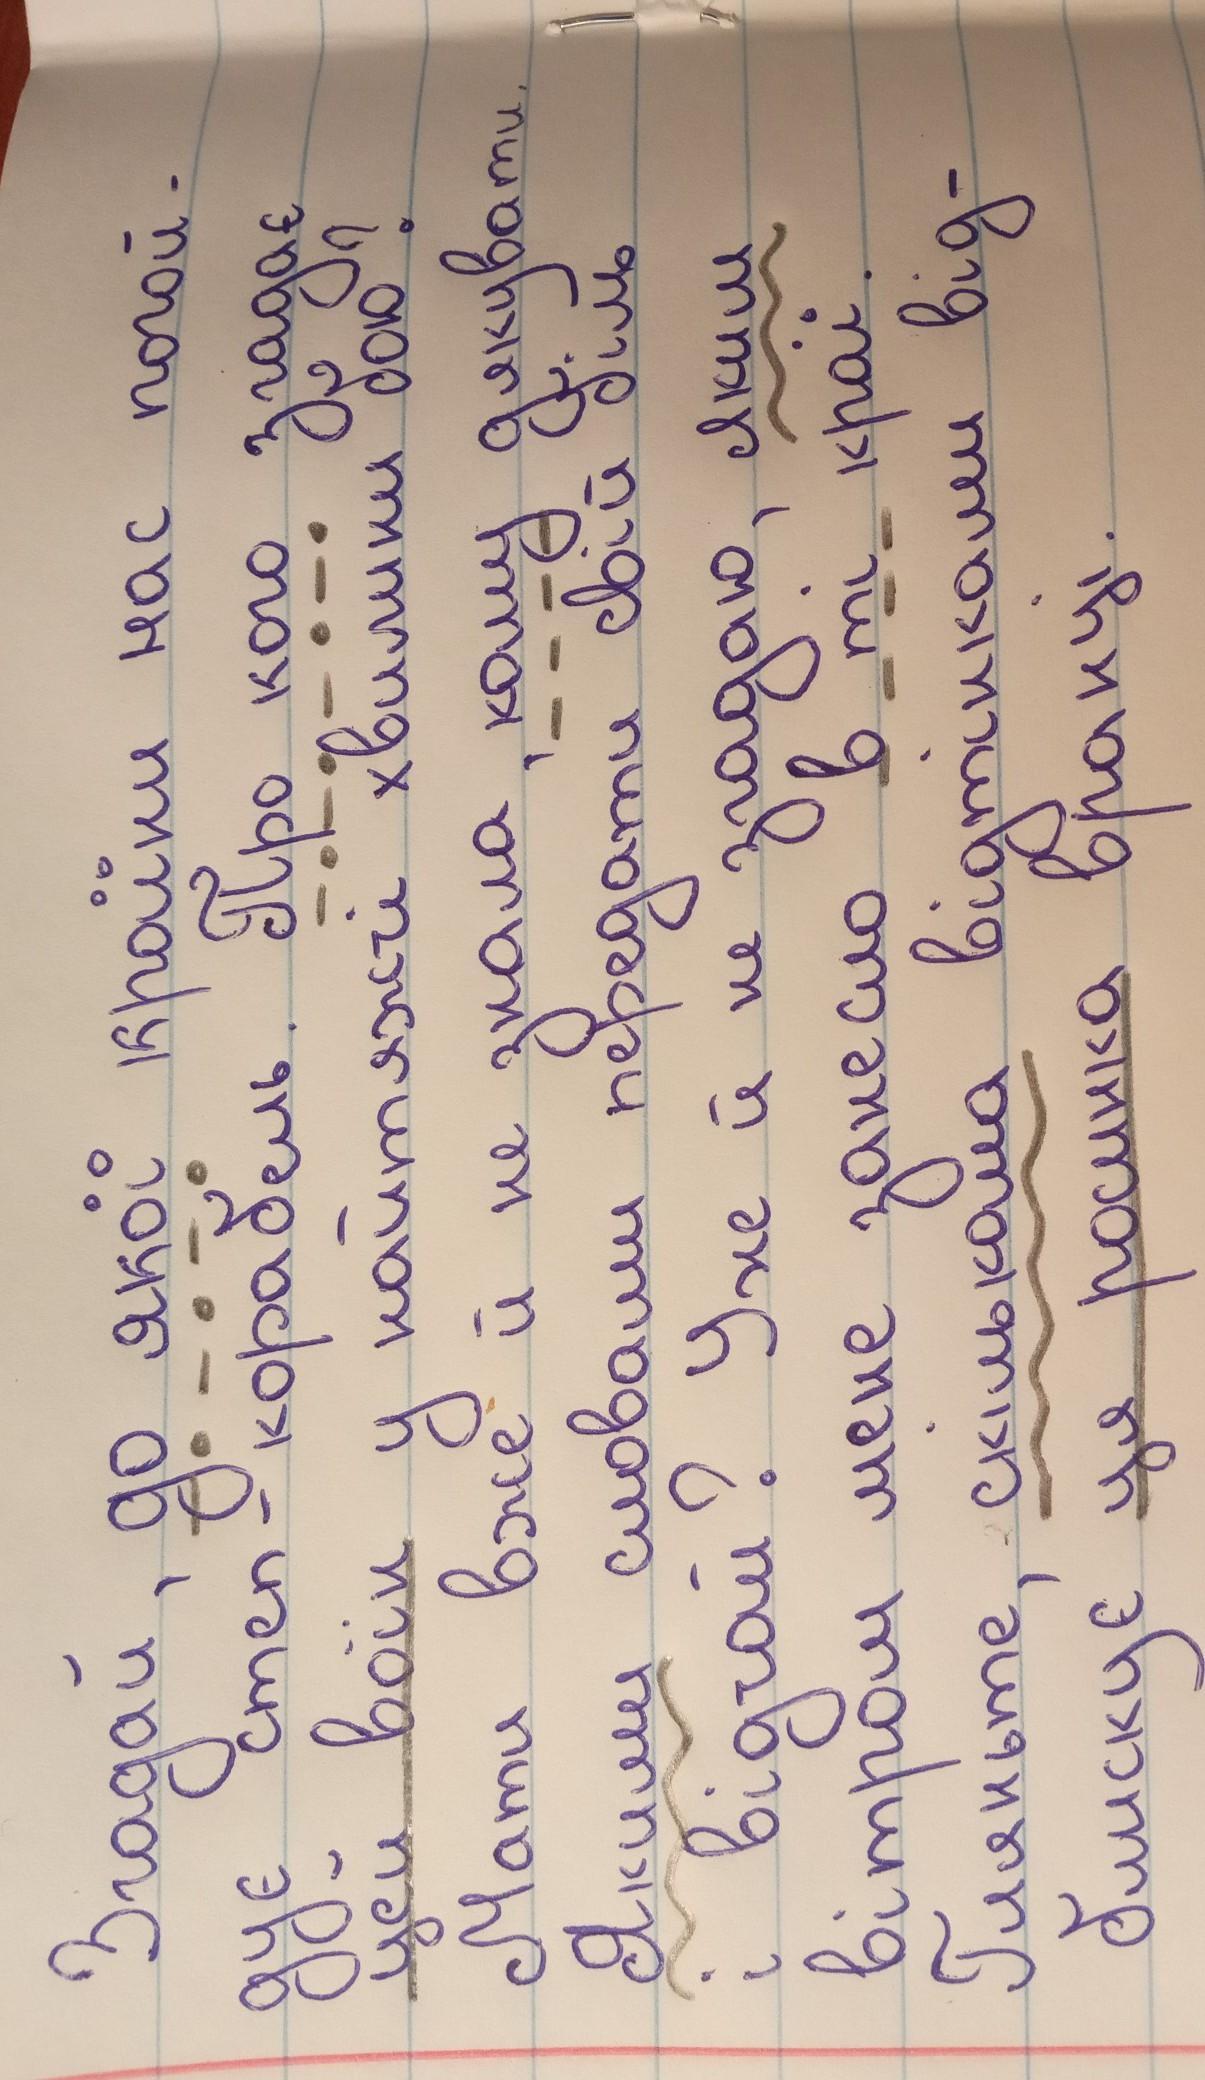 Згадай, до якої країни нас понй.
дує степ-корабель. Про кого згадає
цей воїн у найтяжчі хвилини бою?
Мати вже й не знала, кому дякувати.
Яким словами передати свій біль
і відчай? Уже й не згадаю, яким
вітром мене занесло в ті краї.
Гляньте, скількома відтінками від-
блискує ця росинка вранці.